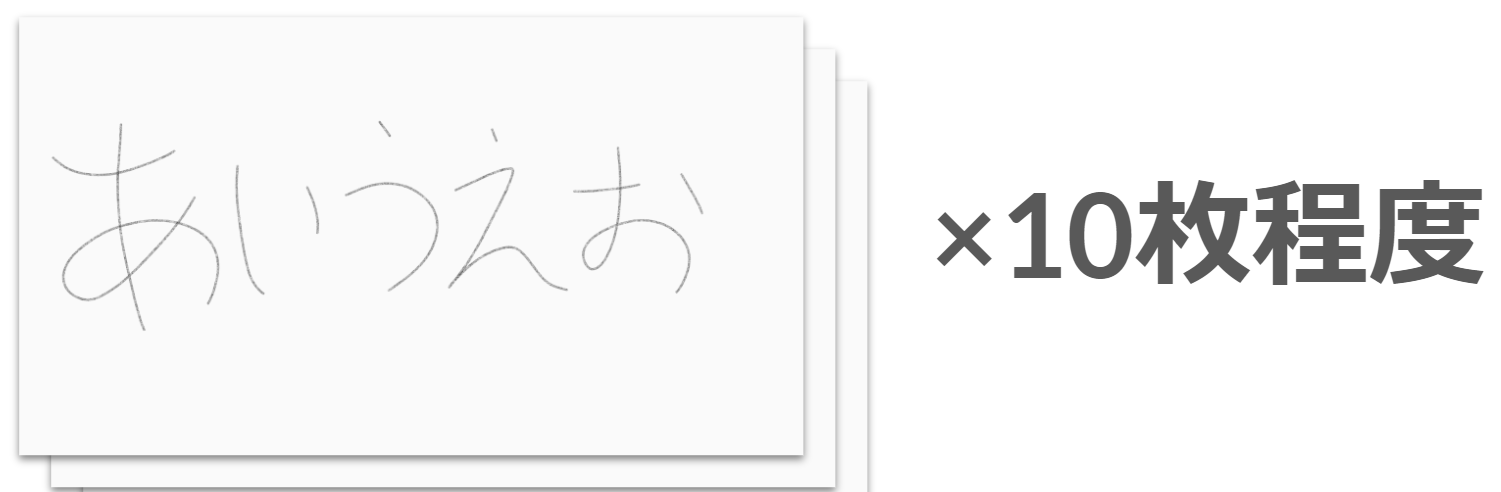 あいうえお
×10枚程度